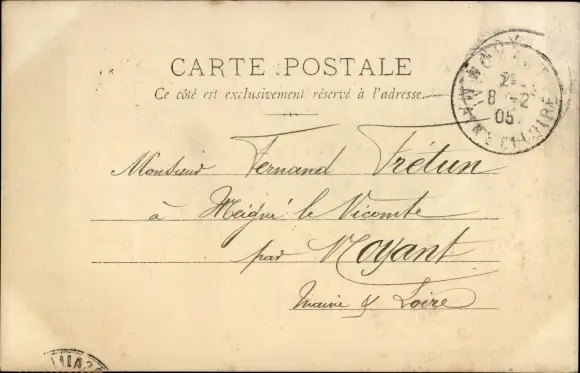 CARTE POSTALE
Ce côté est exclusivement réservé à l'adresse.
8 -2
05
MAINE ET LOIRE
Monsieur Fernand Frétun
à Meigné le Vicomte
par Noyant
Maine & Loire